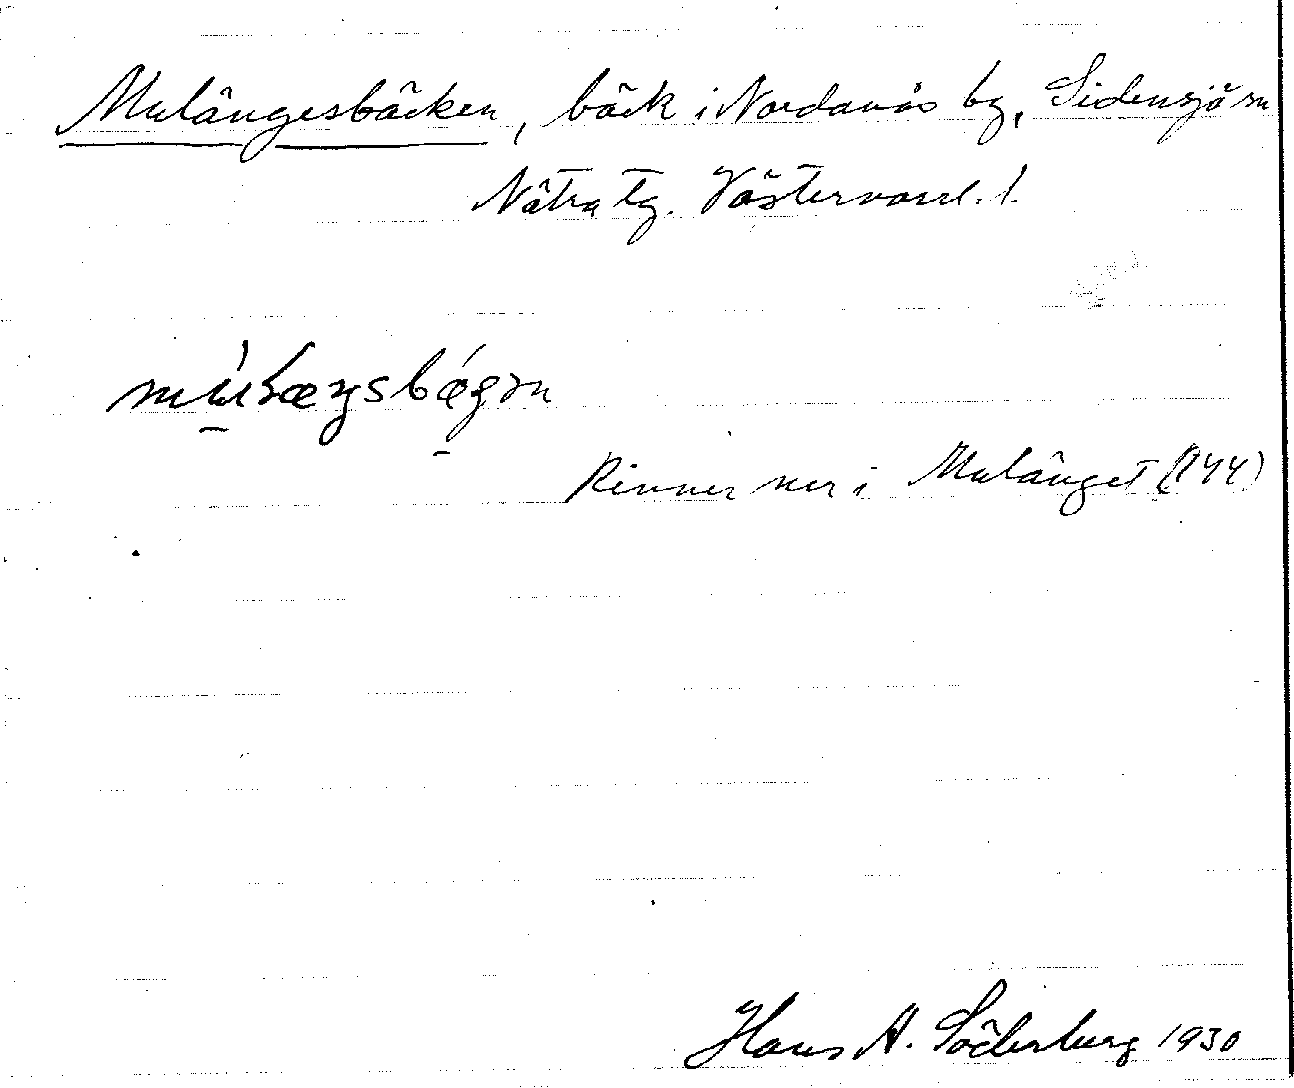 Mulångesbäcken, bäck i Nordanås by, Sidensjö sn
Nätra tg. Västernorrl. l.
Rinner ner i Mulånget (144)
Hans A. Söderberg 1930